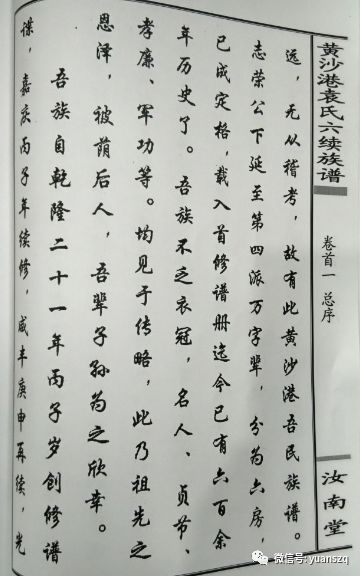 黄沙港袁氏六续族谱
卷首一 总序
汝南堂
远，无从稽考，故有此黄沙港吾民族谱。
志荣公下延至第四派万字辈，分为六房，
已成定格，载入首修谱册迄今已有六百余
年历史了。吾族不乏衣冠，名人、贞节、
孝廉、军功等。均见于传略，此乃祖先之
恩泽，被荫后人，吾辈子孙为之欣幸。
吾族自乾隆二十一年丙子岁创修谱
牒，嘉庆丙子年续修，咸丰庚申再续，光
微信号: yuanszq